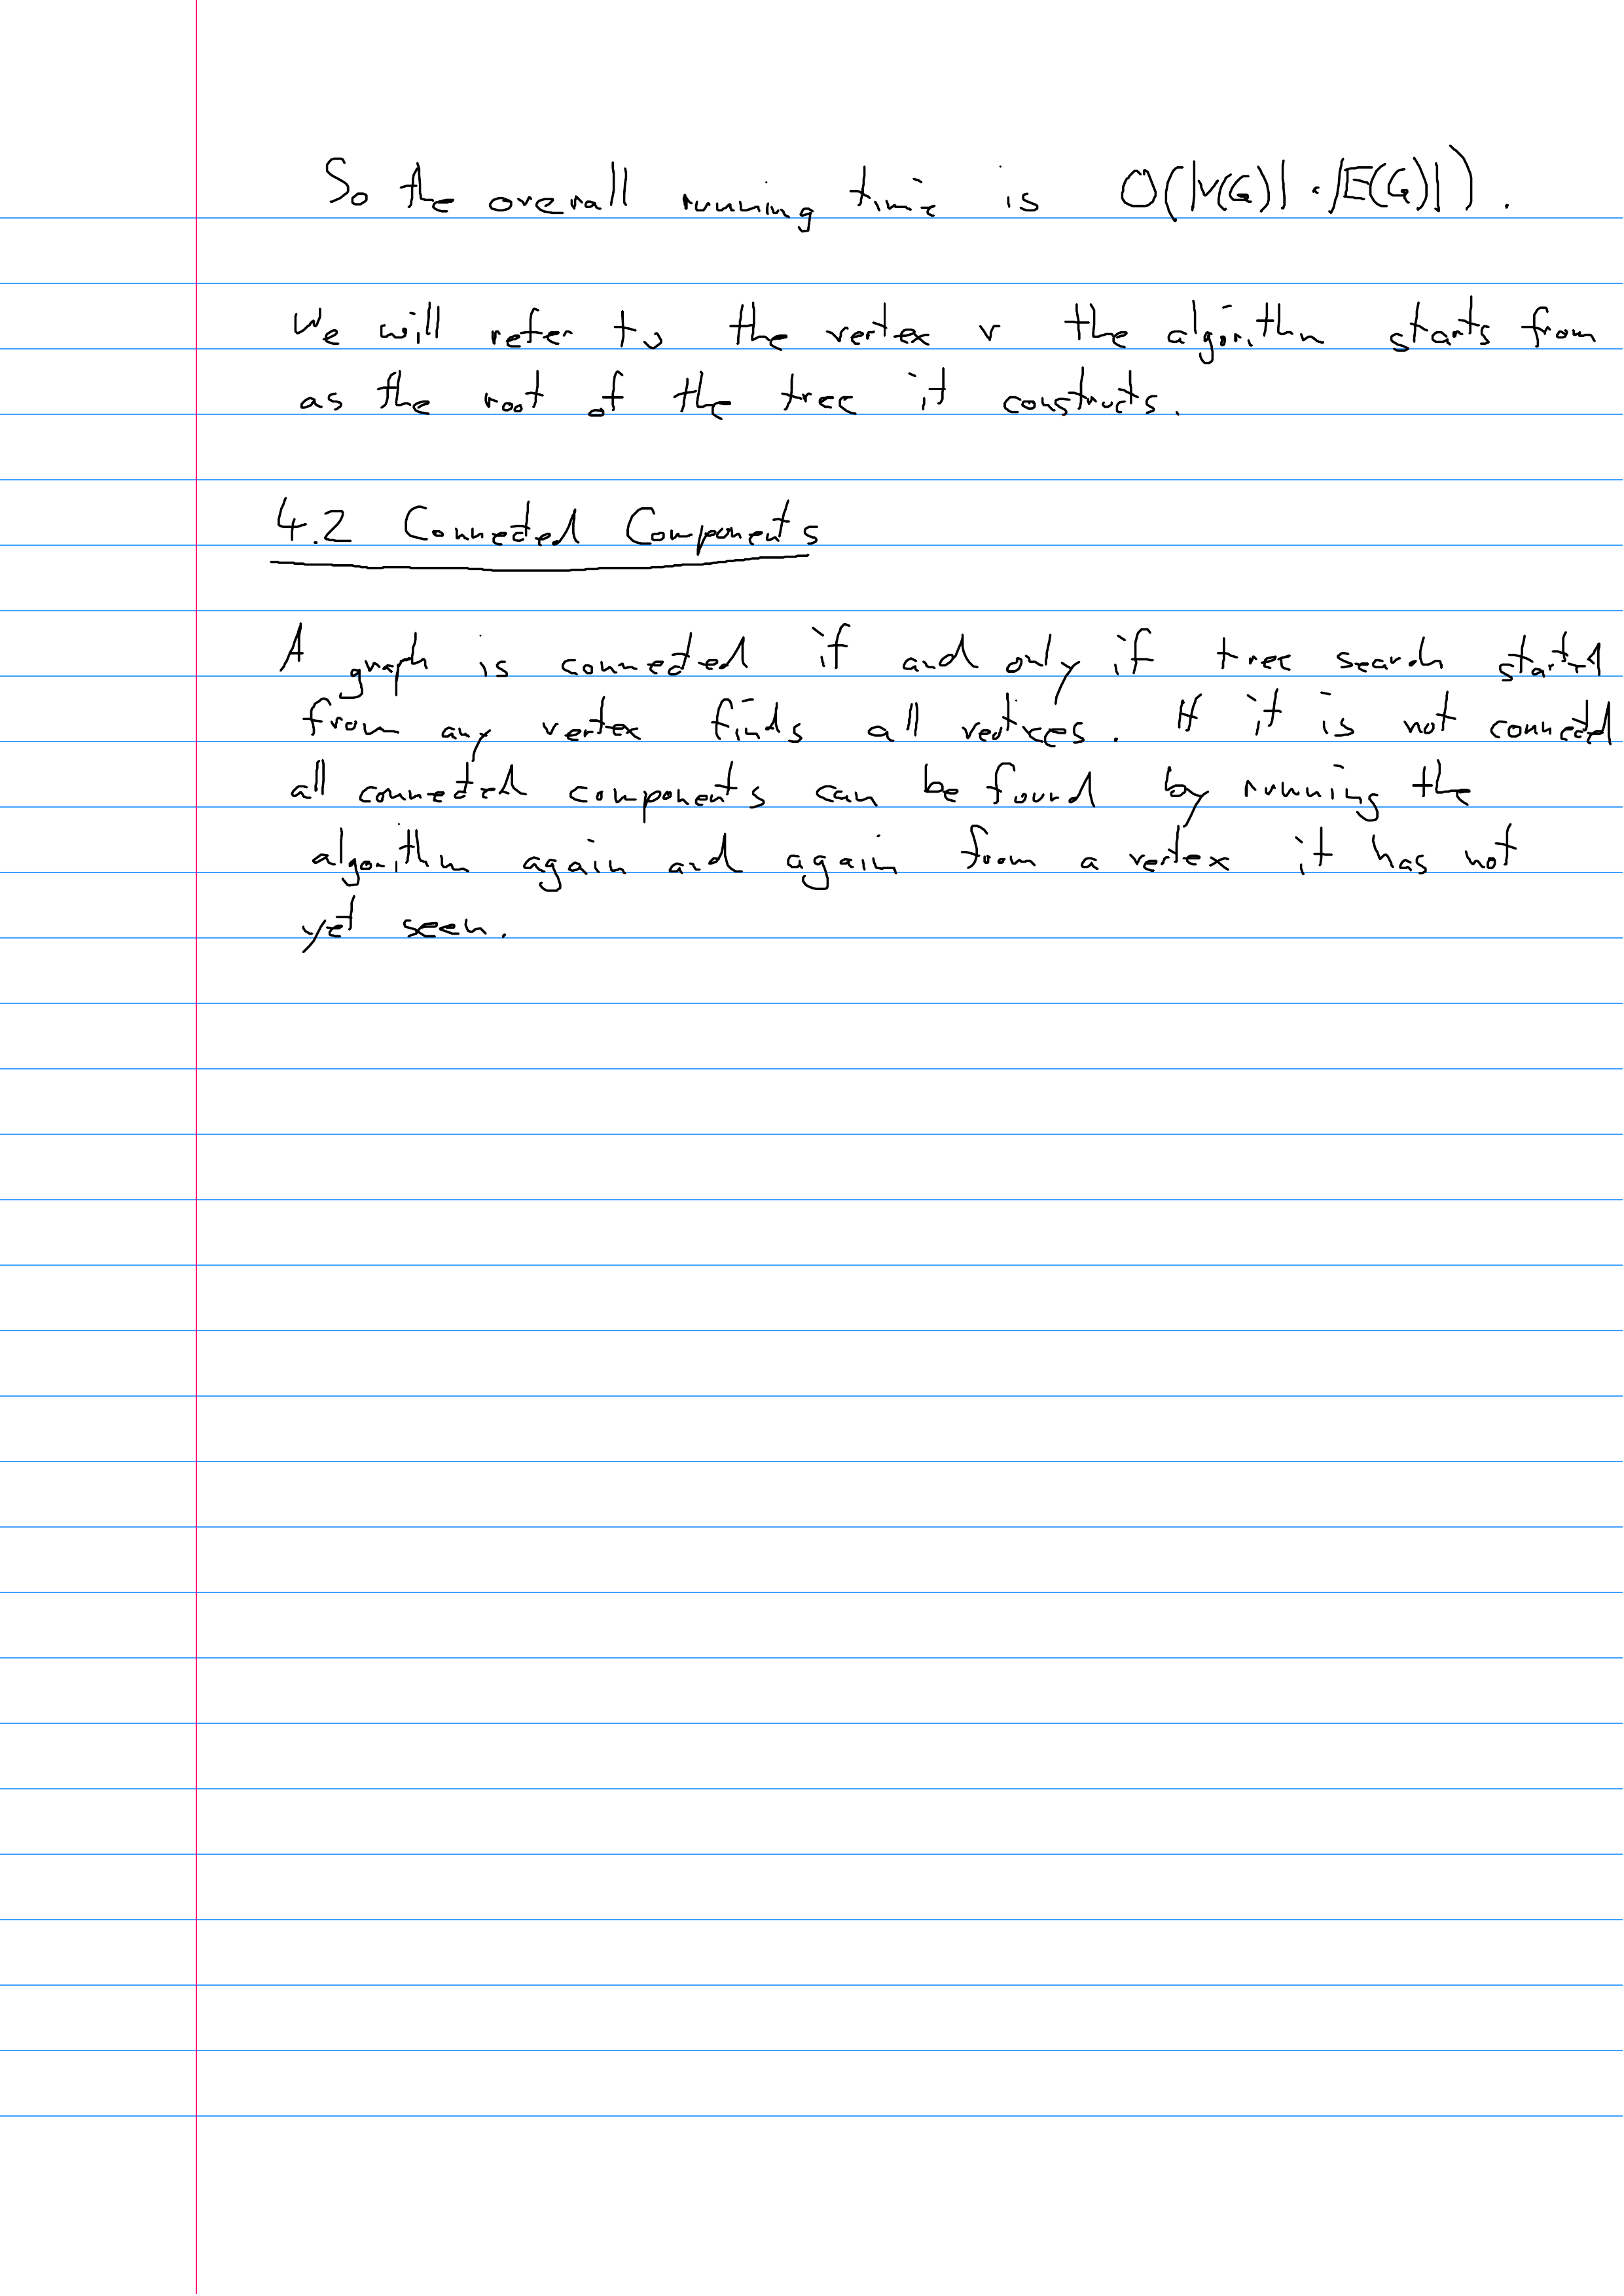 So the overall running time is O(|V(G)| · |E(G)|).
We will refer to the vertex r the algorithm starts from
as the root of the tree it constructs.
4.2 Connected Components
A graph is connected if and only if tree search started
from any vertex finds all vertices. If it is not connected
all connected components can be found by running the
algorithm again and again from a vertex it has not
yet seen.